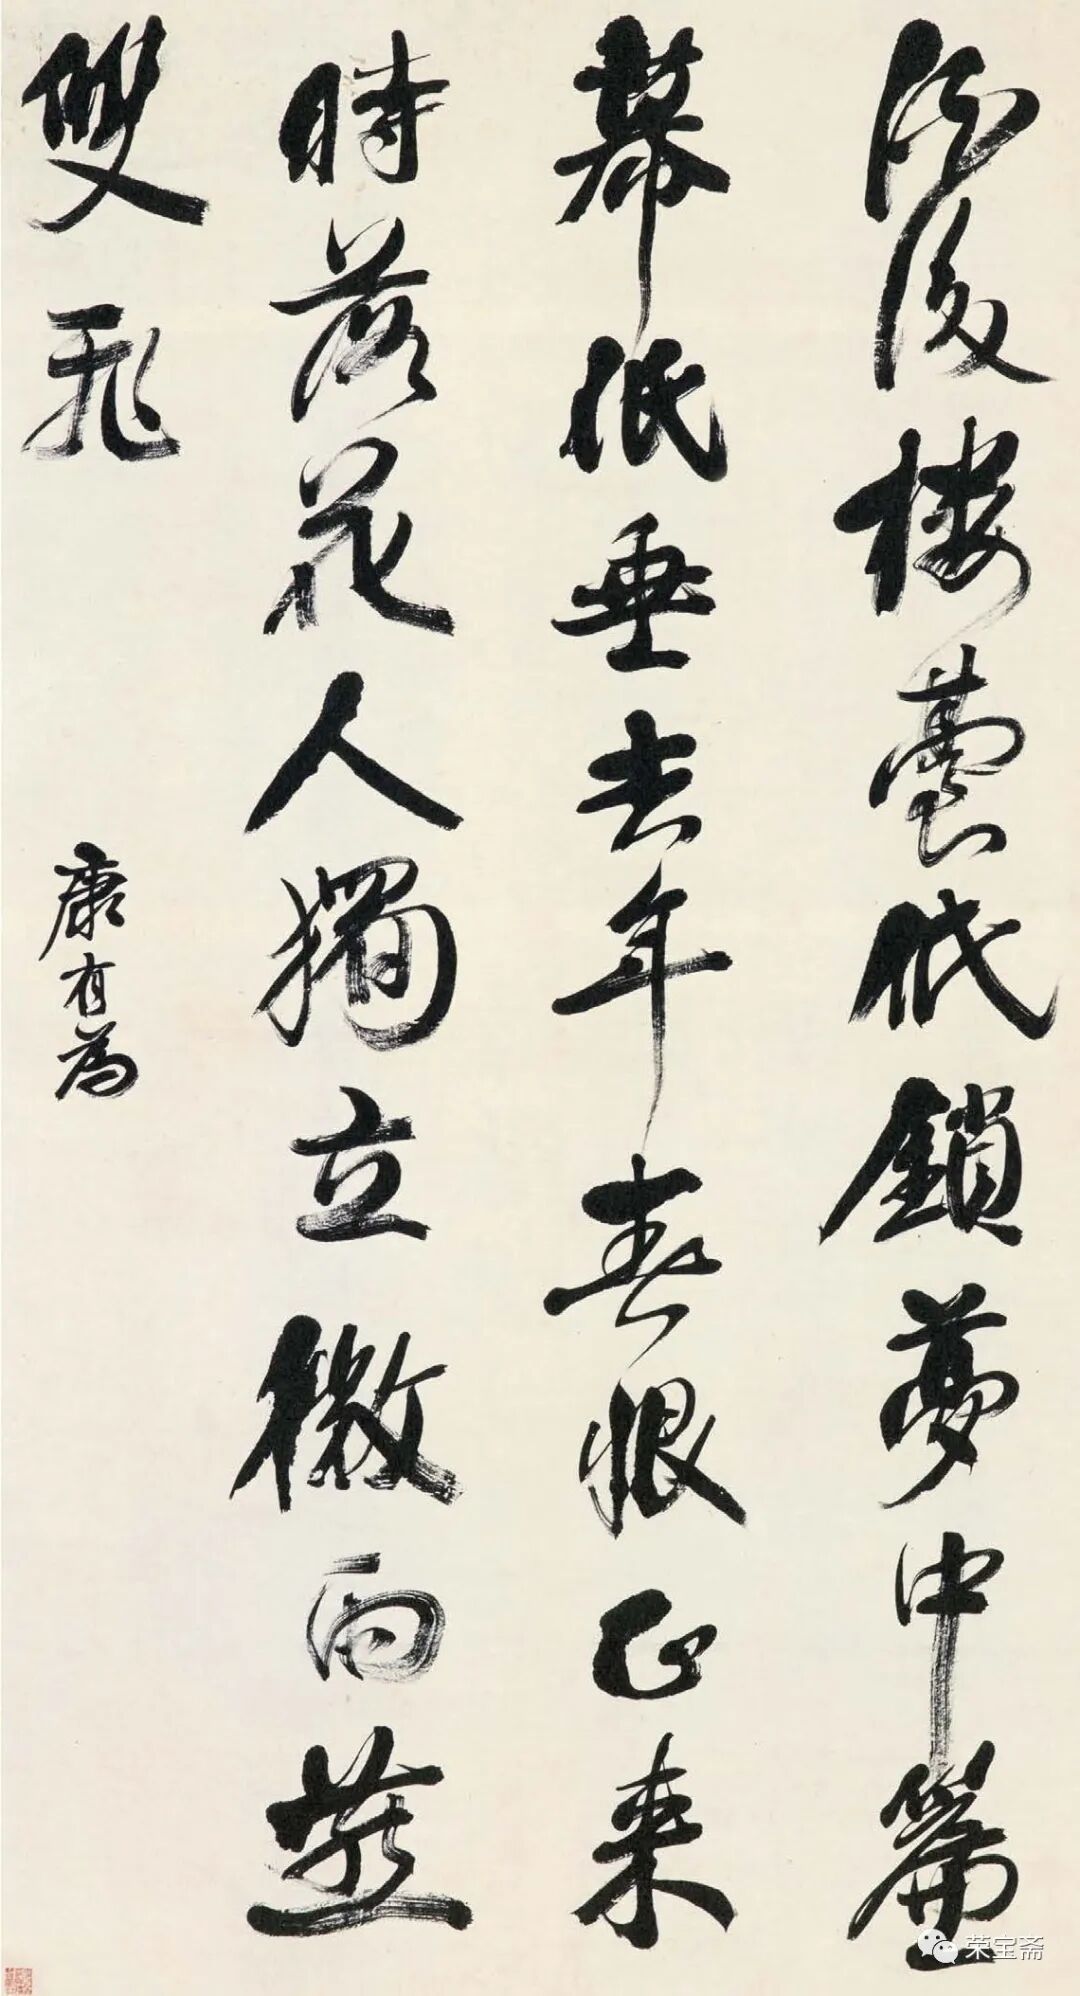 酒後樓臺低鎖夢中簾
幕低垂去年春恨正来
時落花人獨立微雨燕
雙飛
康有為
荣宝斋